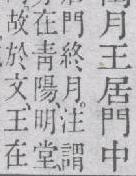 月王居門中
居門終月、注謂
在青陽、明堂、
故於文、王在